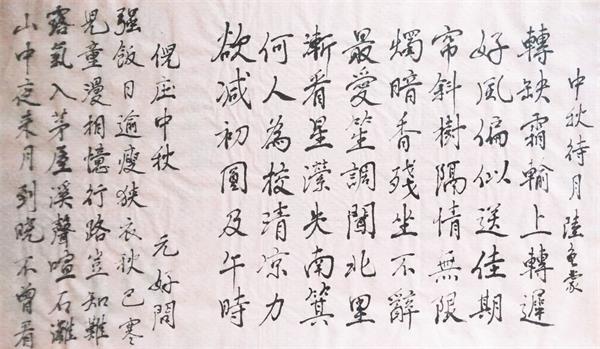 中秋待月 陸龜蒙
轉缺霜輸上轉遲
好風偏似送佳期
帘斜樹隔情無限
燭暗香殘坐不辭
最愛笙調聞北里
漸看星瀠失南箕
何人為校清凉力
欲减初圓及午時
倪庄中秋 元好問
强飯日逾瘦狹衣秋已寒
兒童漫相憶行路豈知難
露氣入茅屋溪聲喧石灘
山中夜来月到曉不曾看